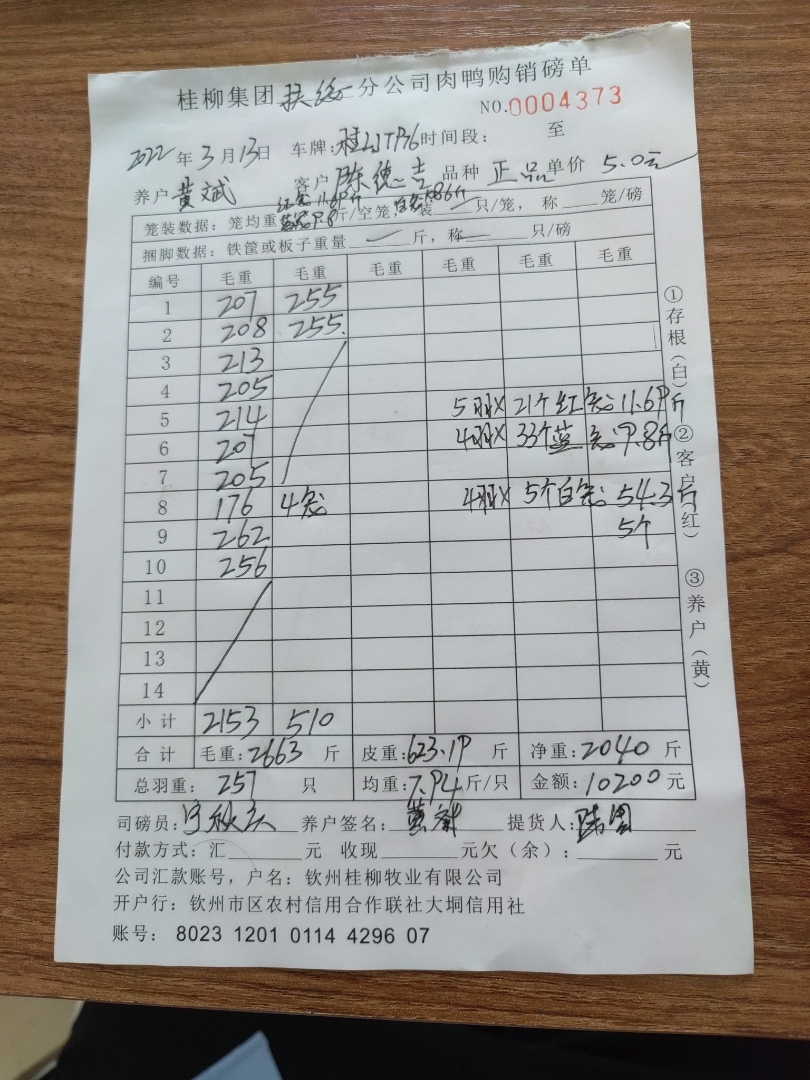 桂柳集团扶绥分公司肉鸭购销磅单
NO.0004373
2022年3月13日 车牌: 时间段: 至
养户 黄斌 客户 陈德吉 品种 正品 单价 5.0元
红笼11.69斤 白笼
笼装数据:笼均重 蓝笼9.8斤/空笼, 装 只/笼, 称 笼/磅
捆脚数据:铁筐或板子重量 斤,称 只/磅
编号 毛重 毛重 毛重 毛重 毛重 毛重
1 207 255
2 208 255
3 213
4 205
5 214 5羽X 21个红笼:11.69斤
6 207 4羽X 33个蓝笼:9.8斤
7 205
8 176 4笼 4羽X 5个白笼:54.3斤
9 262 5个
10 256
11
12
13
14
小计 2153 510
合计 毛重:2663 斤 皮重:623.19 斤 净重:2040 斤
总羽重: 257 只 均重:7.94斤/只 金额:10200元
司磅员: 养户签名: 黄斌 提货人:
付款方式:汇 元 收现 元欠(余): 元
公司汇款账号,户名:钦州桂柳牧业有限公司
开户行:钦州市区农村信用合作联社大垌信用社
账号: 8023 1201 0114 4296 07
①存根(白)②客户(红)③养户(黄)